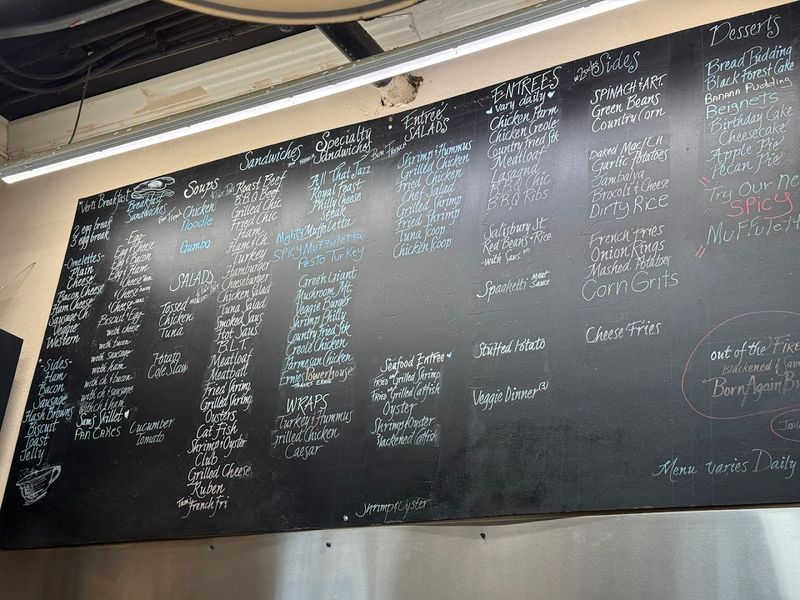 Verti Breakfast
2 egg break
3 egg break
-Omelettes-
Plain
Cheese
Bacon Cheese
Ham Cheese
Sausage Ch
Veggie
Western
-Sides-
Ham
Bacon
Sausage
Hash Browns
Biscuit
Toast
Jelly
Breakfast
Sandwiches
Egg
Egg Cheese
Egg Bacon
Egg Ham
Biscuit Egg
with cheese
with bacon
with sausage
with ham
Sam's Skillet
PanCakes
Soups
Chicken
Noodle
Gumbo
SALADS
Tossed
Chicken
Tuna
Potato
Cole Slaw
Cucumber
Tomato
Sandwiches
Roast Beef
B.B.Q. Beef
Grilled Chic
Fried Chic
Ham
Ham & Ch
Turkey
Hamburger
Cheeseburger
Chicken Salad
Tuna Salad
Smoked Saus
Hot Saus
B.L.T.
Meatloaf
Meatball
Fried Shrimp
Grilled Shrimp
Oysters
Cat Fish
Shrimp & Oyster
Club
Grilled Cheese
Ruben
French Fri
Specialty
Sandwiches
All That Jazz
Royal Feast
Philly Cheese
Steak
Mighty Muffeletta
SPICY Muffuletta
Pesto Turkey
Green Giant
Mushroom Mt
Veggie Burger
Shrimp Philly
Country Fried Stk
Creole Chicken
Parmesan Chicken
Ernie's Powerhouse
THANKS ERNIE
WRAPS
Turkey & Hummus
Grilled Chicken
Caesar
Entreé
SALADS
Shrimp & Hummus
Grilled Chicken
Fried Chicken
Chef Salad
Grilled Shrimp
Fried Shrimp
Tuna Koop
Chicken Koop
Seafood Entree
Fried or Grilled Shrimp
Fried or Grilled Catfish
Oyster
Shrimp & Oyster
Blackened Catfish
Shrimp & Oyster
ENTREES
vary daily
Chicken Parm
Chicken Creole
Country Fried Stk
Meatloaf
Lasagna
BBQ Chic
BBQ Ribs
Salisbury St.
Red Beans & Rice
-with Saus
Spaghetti Meat Sauce
Stuffed Potato
Veggie Dinner (3)
Sides
SPINACH & ART.
Green Beans
Country Corn
Baked Mac/CH
Garlic Potatoes
Jambalya
Brocoli & Cheese
Dirty Rice
French Fries
Onion Rings
Mashed Potatoes
Corn Grits
Cheese Fries
Desserts
Bread Pudding
Black Forest Cake
BANANA Pudding
Beignets
Birthday Cake
Cheesecake
Apple Pie
Pecan Pie
Try Our Ne
SPICY
MuFFulett
out of the Fire
Blackened & Sav
"Born Again B
Menu varies Daily